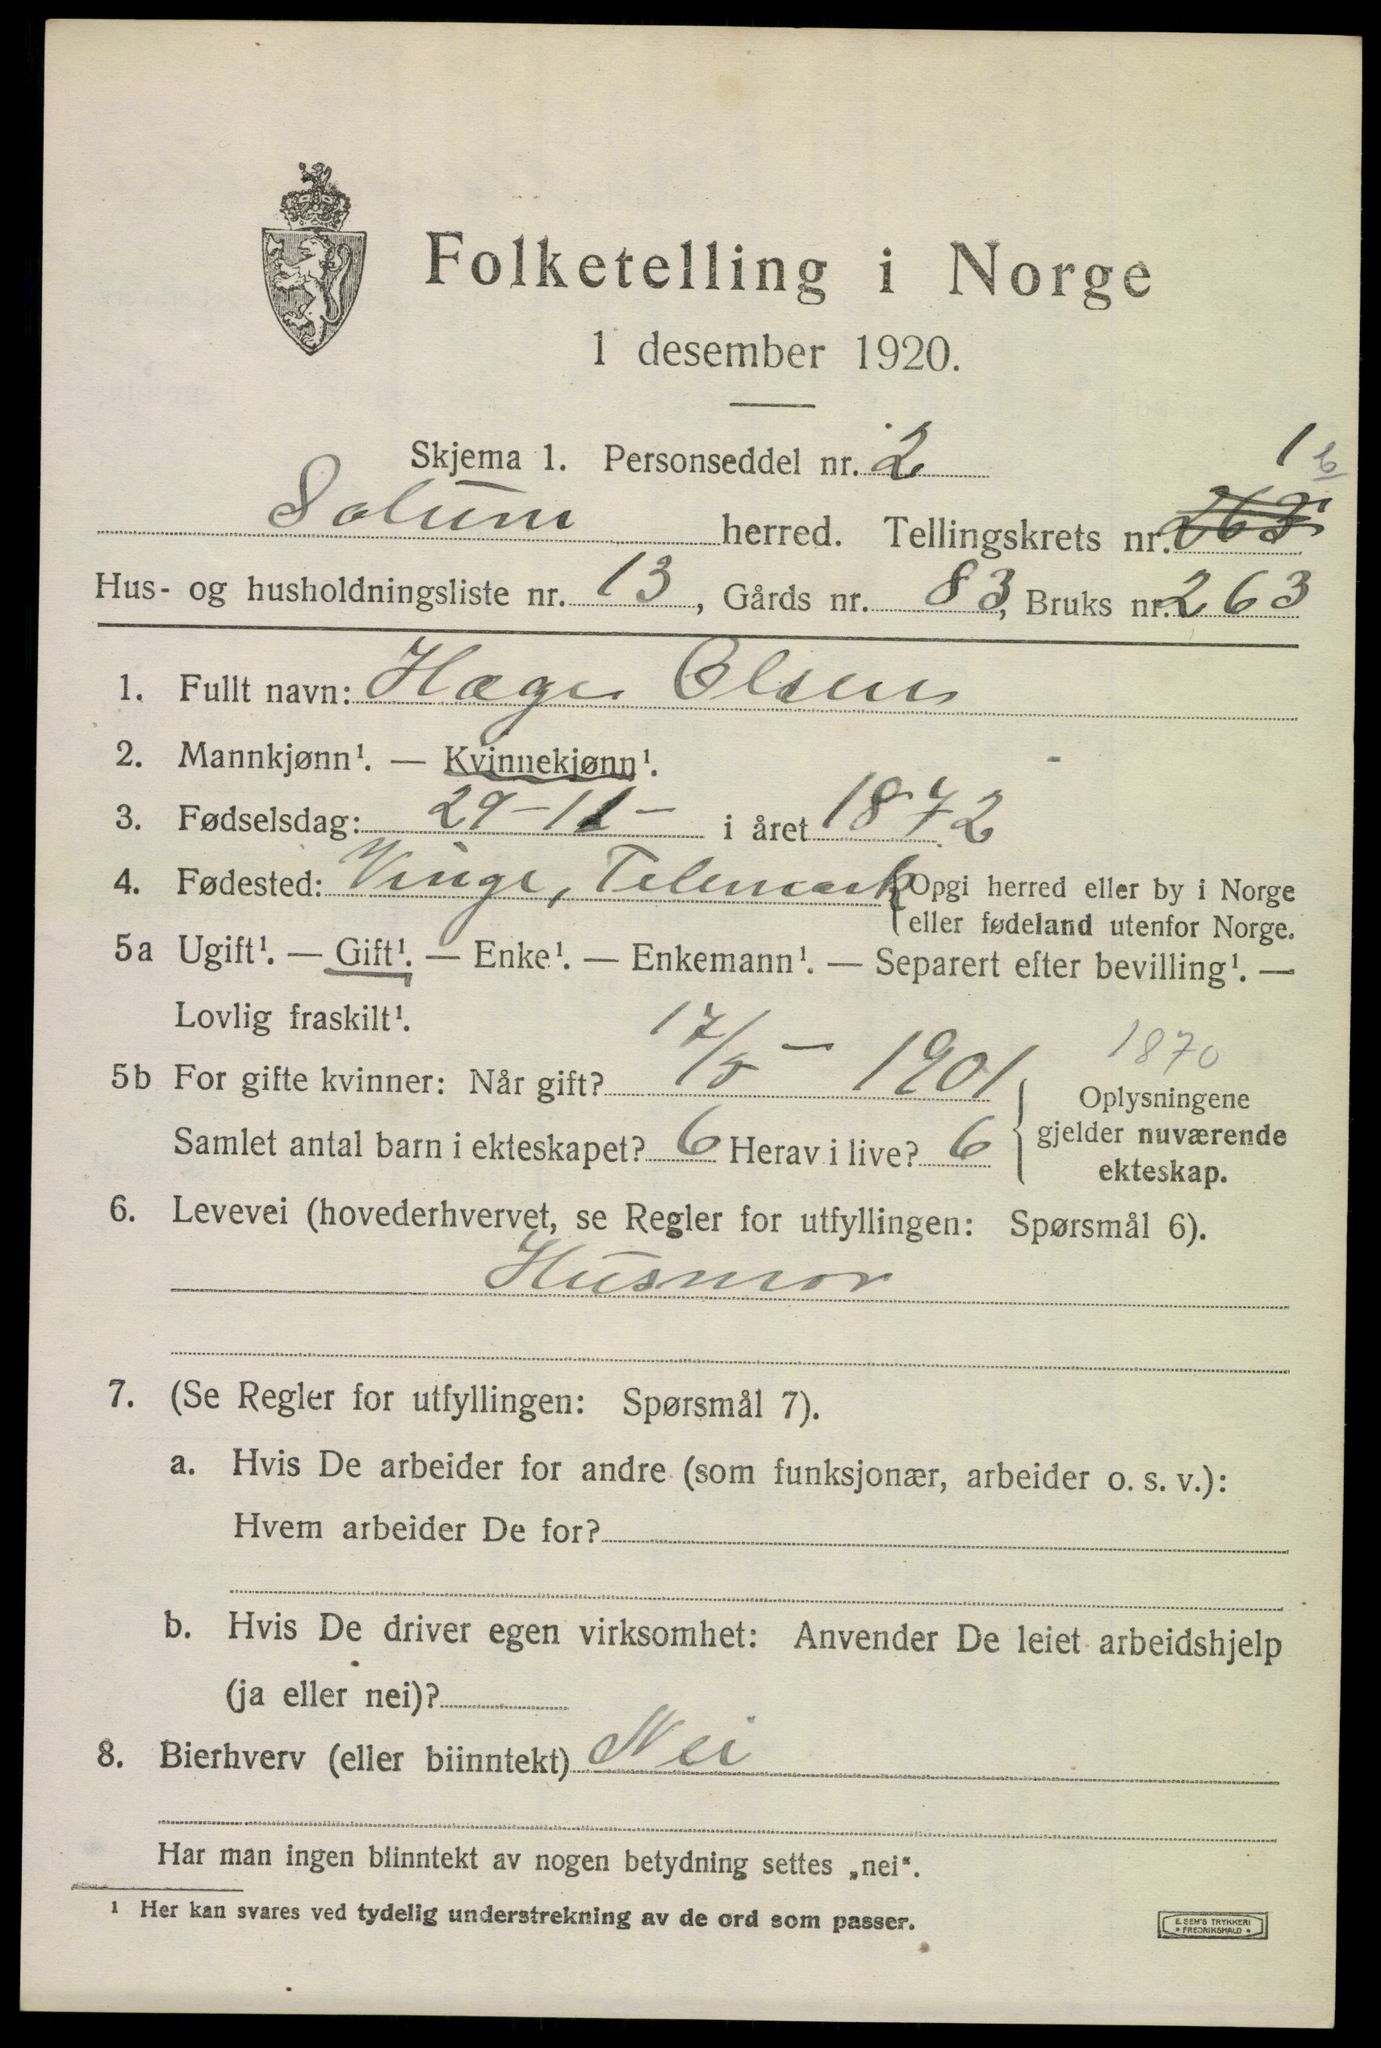 Folketelling i Norge
1 desember 1920.
Skjema 1. Personseddel nr. 2
1 b
Solum herred. Tellingskrets nr. 263
Hus- og husholdningsliste nr. 13, Gårds nr. 83, Bruks nr. 263
1. Fullt navn: Hæge Olsen
2. Mannkjønn¹. — Kvinnekjønn¹.
3. Fødselsdag: 29-11- i året 1872
4. Fødested: Vinge, Telemark { Opgi herred eller by i Norge
eller fødeland utenfor Norge.
5a Ugift¹. — Gift¹. — Enke¹. — Enkemann¹. — Separert efter bevilling¹. —
Lovlig fraskilt¹.
5b For gifte kvinner: Når gift? 17/5 — 1901
1870
Samlet antal barn i ekteskapet? 6 Herav i live? 6
Oplysningene
gjelder nuværende
ekteskap.
6. Levevei (hovederhvervet, se Regler for utfyllingen: Spørsmål 6).
Husmor
7. (Se Regler for utfyllingen: Spørsmål 7).
a. Hvis De arbeider for andre (som funksjonær, arbeider o. s. v.):
Hvem arbeider De for?
b. Hvis De driver egen virksomhet: Anvender De leiet arbeidshjelp
(ja eller nei)?
8. Bierhverv (eller biinntekt) Nei
Har man ingen biinntekt av nogen betydning settes „nei“.
¹ Her kan svares ved tydelig understrekning av de ord som passer.
E. SEM'S TRYKKERI
• FREDRIKSHALD •